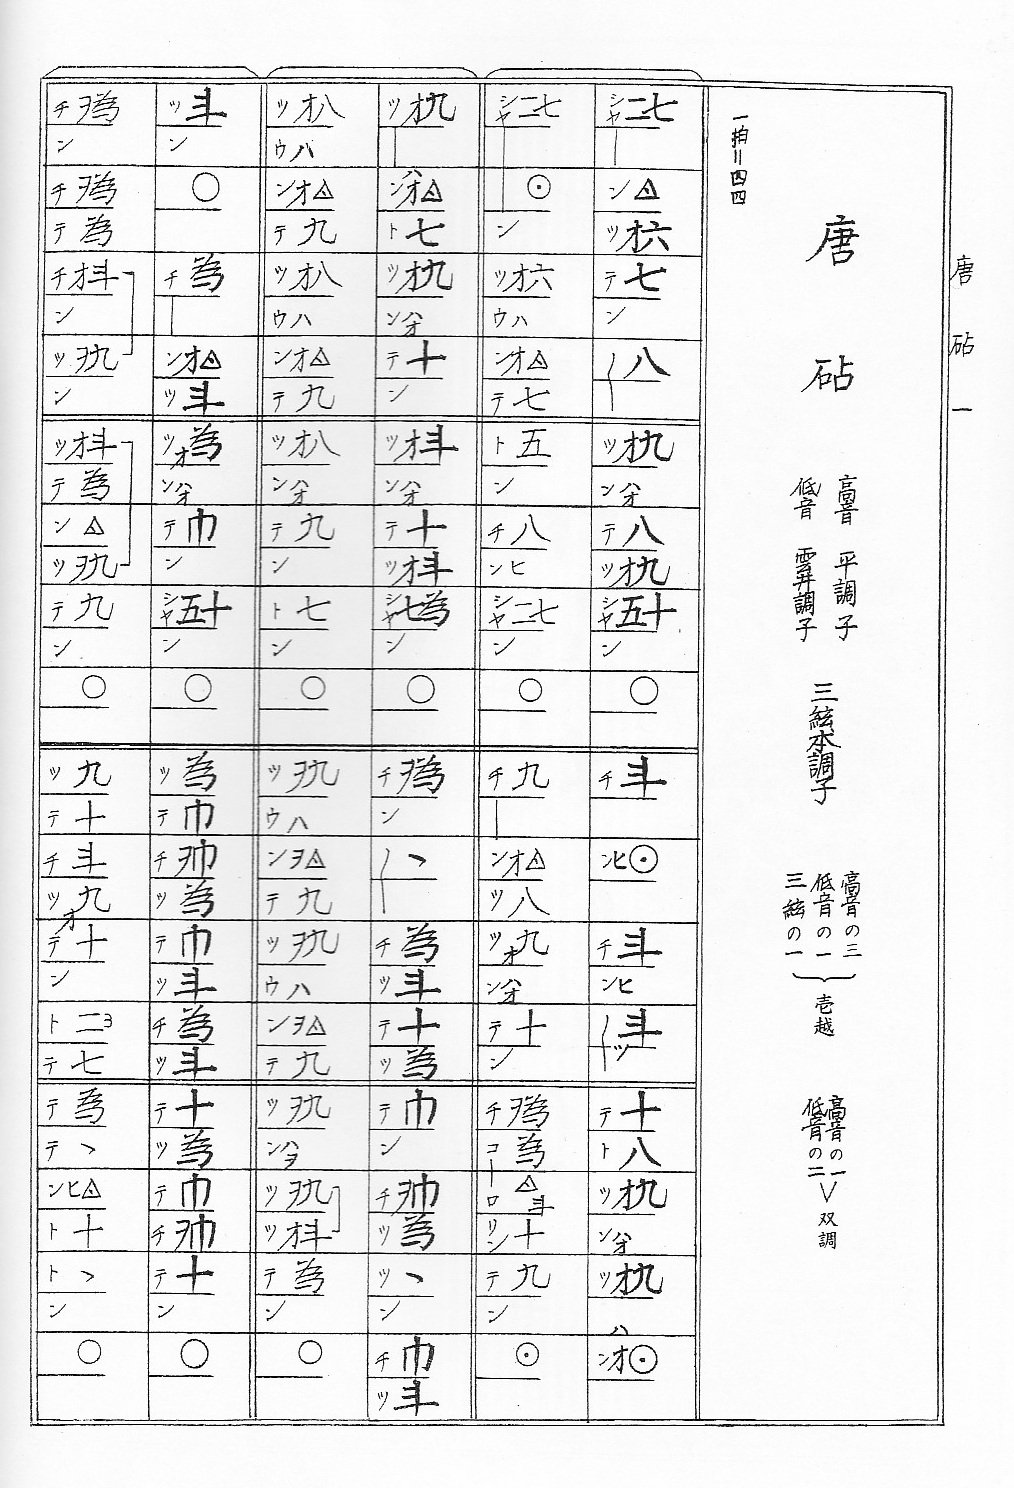 唐砧 一
一拍=四四
唐砧
高音 平調子
低音 雲井調子
三絃本調子
高音の三
低音の一
三絃の一
壱越
高音の一
低音の二
双調
シャ二七
ン△
ツオ六
テ七
ン
八
ツオ九
ンハオ
テ八
ツオ九
シャ五十
ン
○
チ斗
ンヒ⊙
チ斗
ンヒ
斗
ツ
テ十
ト八
ツオ九
ンハオ
ツオ九
ハ
ンオ⊙
シャ二七
⊙
ン
ツオ六
ウハ
ンオ△
テ七
ト五
ン
チ八
ンヒ
シャ二七
ン
○
チ九
ンオ△
ツ八
ツオ九
ンハオ
テ十
ン
チヲ為
コ為
ーロ△斗
リン十
テ九
ン
⊙
ツオ九
ハ
ンオ△
ト七
ツオ九
ンハオ
テ十
ン
ツオ斗
ンハオ
テ十
ツオ斗
シャ七為
ン
○
チヲ為
ン
ヽ
チ為
ツ斗
テ十
ツ為
テ巾
ン
チヲ巾
ツ為
ツヽ
ン
チ巾
ツ斗
ツオ八
ウハ
ンオ△
テ九
ツオ八
ウハ
ンオ△
テ九
ツオ八
ンハオ
テ九
ン
ト七
ン
○
ツヲ九
ウハ
ンヲ△
テ九
ツヲ九
ウハ
ンヲ△
テ九
ツヲ九
ンハヲ
ツヲ九
ツオ斗
テ為
ン
○
ツ斗
ン
○
チ為
ンオ△
ツ斗
ツオ為
ンハオ
テ巾
ン
シャ五十
ン
○
ツ為
テ巾
チヲ巾
ツ為
テ巾
ツ斗
チ為
ツ斗
テ十
ツ為
テ巾
チヲ巾
テ十
ン
○
チヲ為
ン
チヲ為
テ為
チオ斗
ン
ツヲ九
ン
ツオ斗
テ為
ン△
ツヲ九
テ九
ン
○
ツ九
テ十
チ斗
ツオ九
テ十
ン
ト二ヨ
テ七
テ為
テヽ
ンヒ△
ト十
トヽ
ン
○